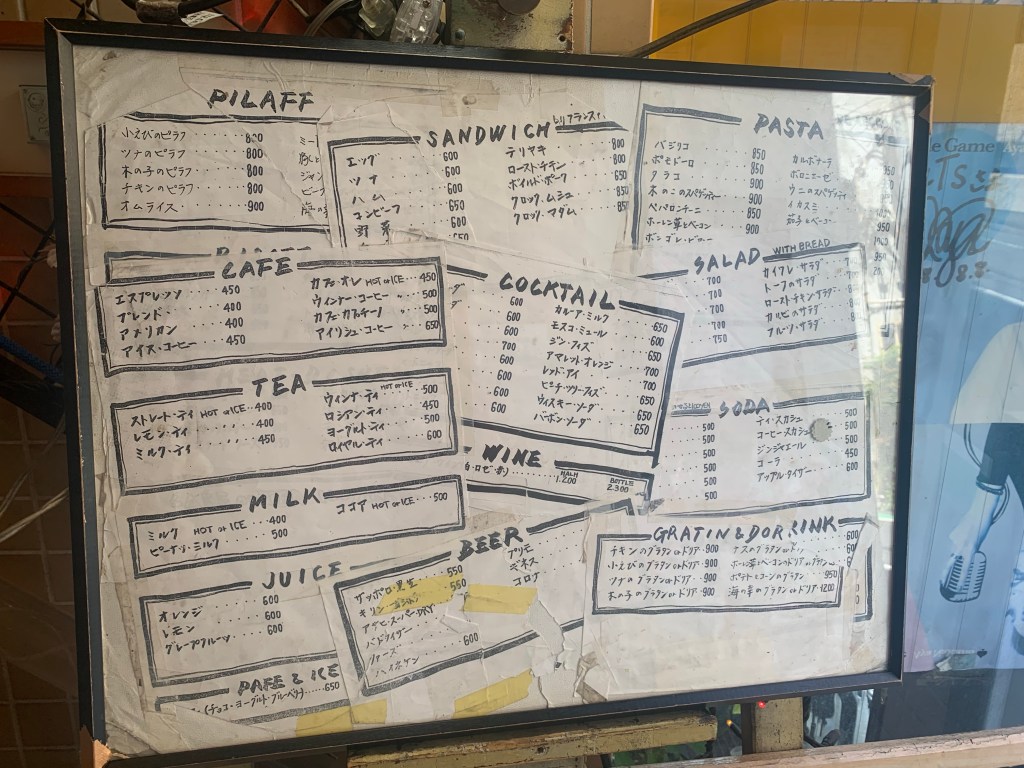 PILAFF
小えびのピラフ ‥‥‥ 800
ツナのピラフ ‥‥‥ 800
木の子のピラフ ‥‥‥ 800
チキンのピラフ ‥‥‥ 800
オムライス ‥‥‥ 900
SANDWICH
エッグ 600
ツナ 600
ハム 600
コンビーフ 650
野菜 600
テリヤキ 800
ローストチキン 800
ボイルド・ポーク
クロック・ムシュ
クロック・マダム 850
PASTA
バジリコ 850
ポモドーロ 850
タラコ 900
木のこのスパゲティー 900
ペペロンチーニ 850
ホーレン草とベーコン 900
カルボナーラ
ボロニーゼ
ウニのスパゲティ
イカスミ
茄子とベーコン
CAFE
エスプレッソ 450
ブレンド 400
アメリカン 400
アイス・コーヒー 450
カフェ・オレ HOT or ICE 450
ウィンナー・コーヒー 500
カフェ・カプチーノ 500
アイリシュ・コーヒー 650
COCKTAIL
600
600
600
700
600
600
600
カルーア・ミルク 650
モスコ・ミュール 600
ジン・フィズ 650
アマレット・オレンジ 700
レッド・アイ 700
ピーチ・ツリーフィズ
ウィスキー・ソーダ 650
バーボン・ソーダ 650
SALAD WITH BREAD
700
700
700
700
750
カイワレ・サラダ
トーフのサラダ
ローストチキン・サラダ
カルビのサラダ
フルーツ・サラダ
TEA
ストレート・ティ HOT or ICE 400
レモン・ティ 400
ミルク・ティ 450
ウィンナ・ティ HOT or ICE 500
ロシアン・ティ 450
ヨーグルト・ティ 500
ロイヤル・ティ 600
SODA
500
500
500
500
500
ティ・スカッシュ 500
コーヒースカッシュ 500
ジンジャエール 500
コーラ 450
アップル・タイザー 600
WINE
白・ロゼ・赤 HALH 1.200 BOTTLE 2.300
MILK
ミルク HOT or ICE 400
ピーナツ・ミルク 500
ココア HOT or ICE 500
BEER
サッポロ黒生 550
キリン 550
アサヒ・スーパーDRY
バドワイザー
クアーズ
ハイネケン 600
コロナ
GRATIN & DOR
チキンのグラタン or ドリア 900
小えびのグラタン or ドリア 900
ツナのグラタン or ドリア 900
木の子のグラタン or ドリア 900
ナスのグラタン or
ホーレン草とベーコンのグラタン or ドリア
ポテトとコーンのグラタン 950
海の幸のグラタン or ドリア 1200
RINK
JUICE
オレンジ 600
レモン 600
グレープフルーツ 600
PAFE & ICE
(チョコ・ヨーグルト・ブルーベリー) 650